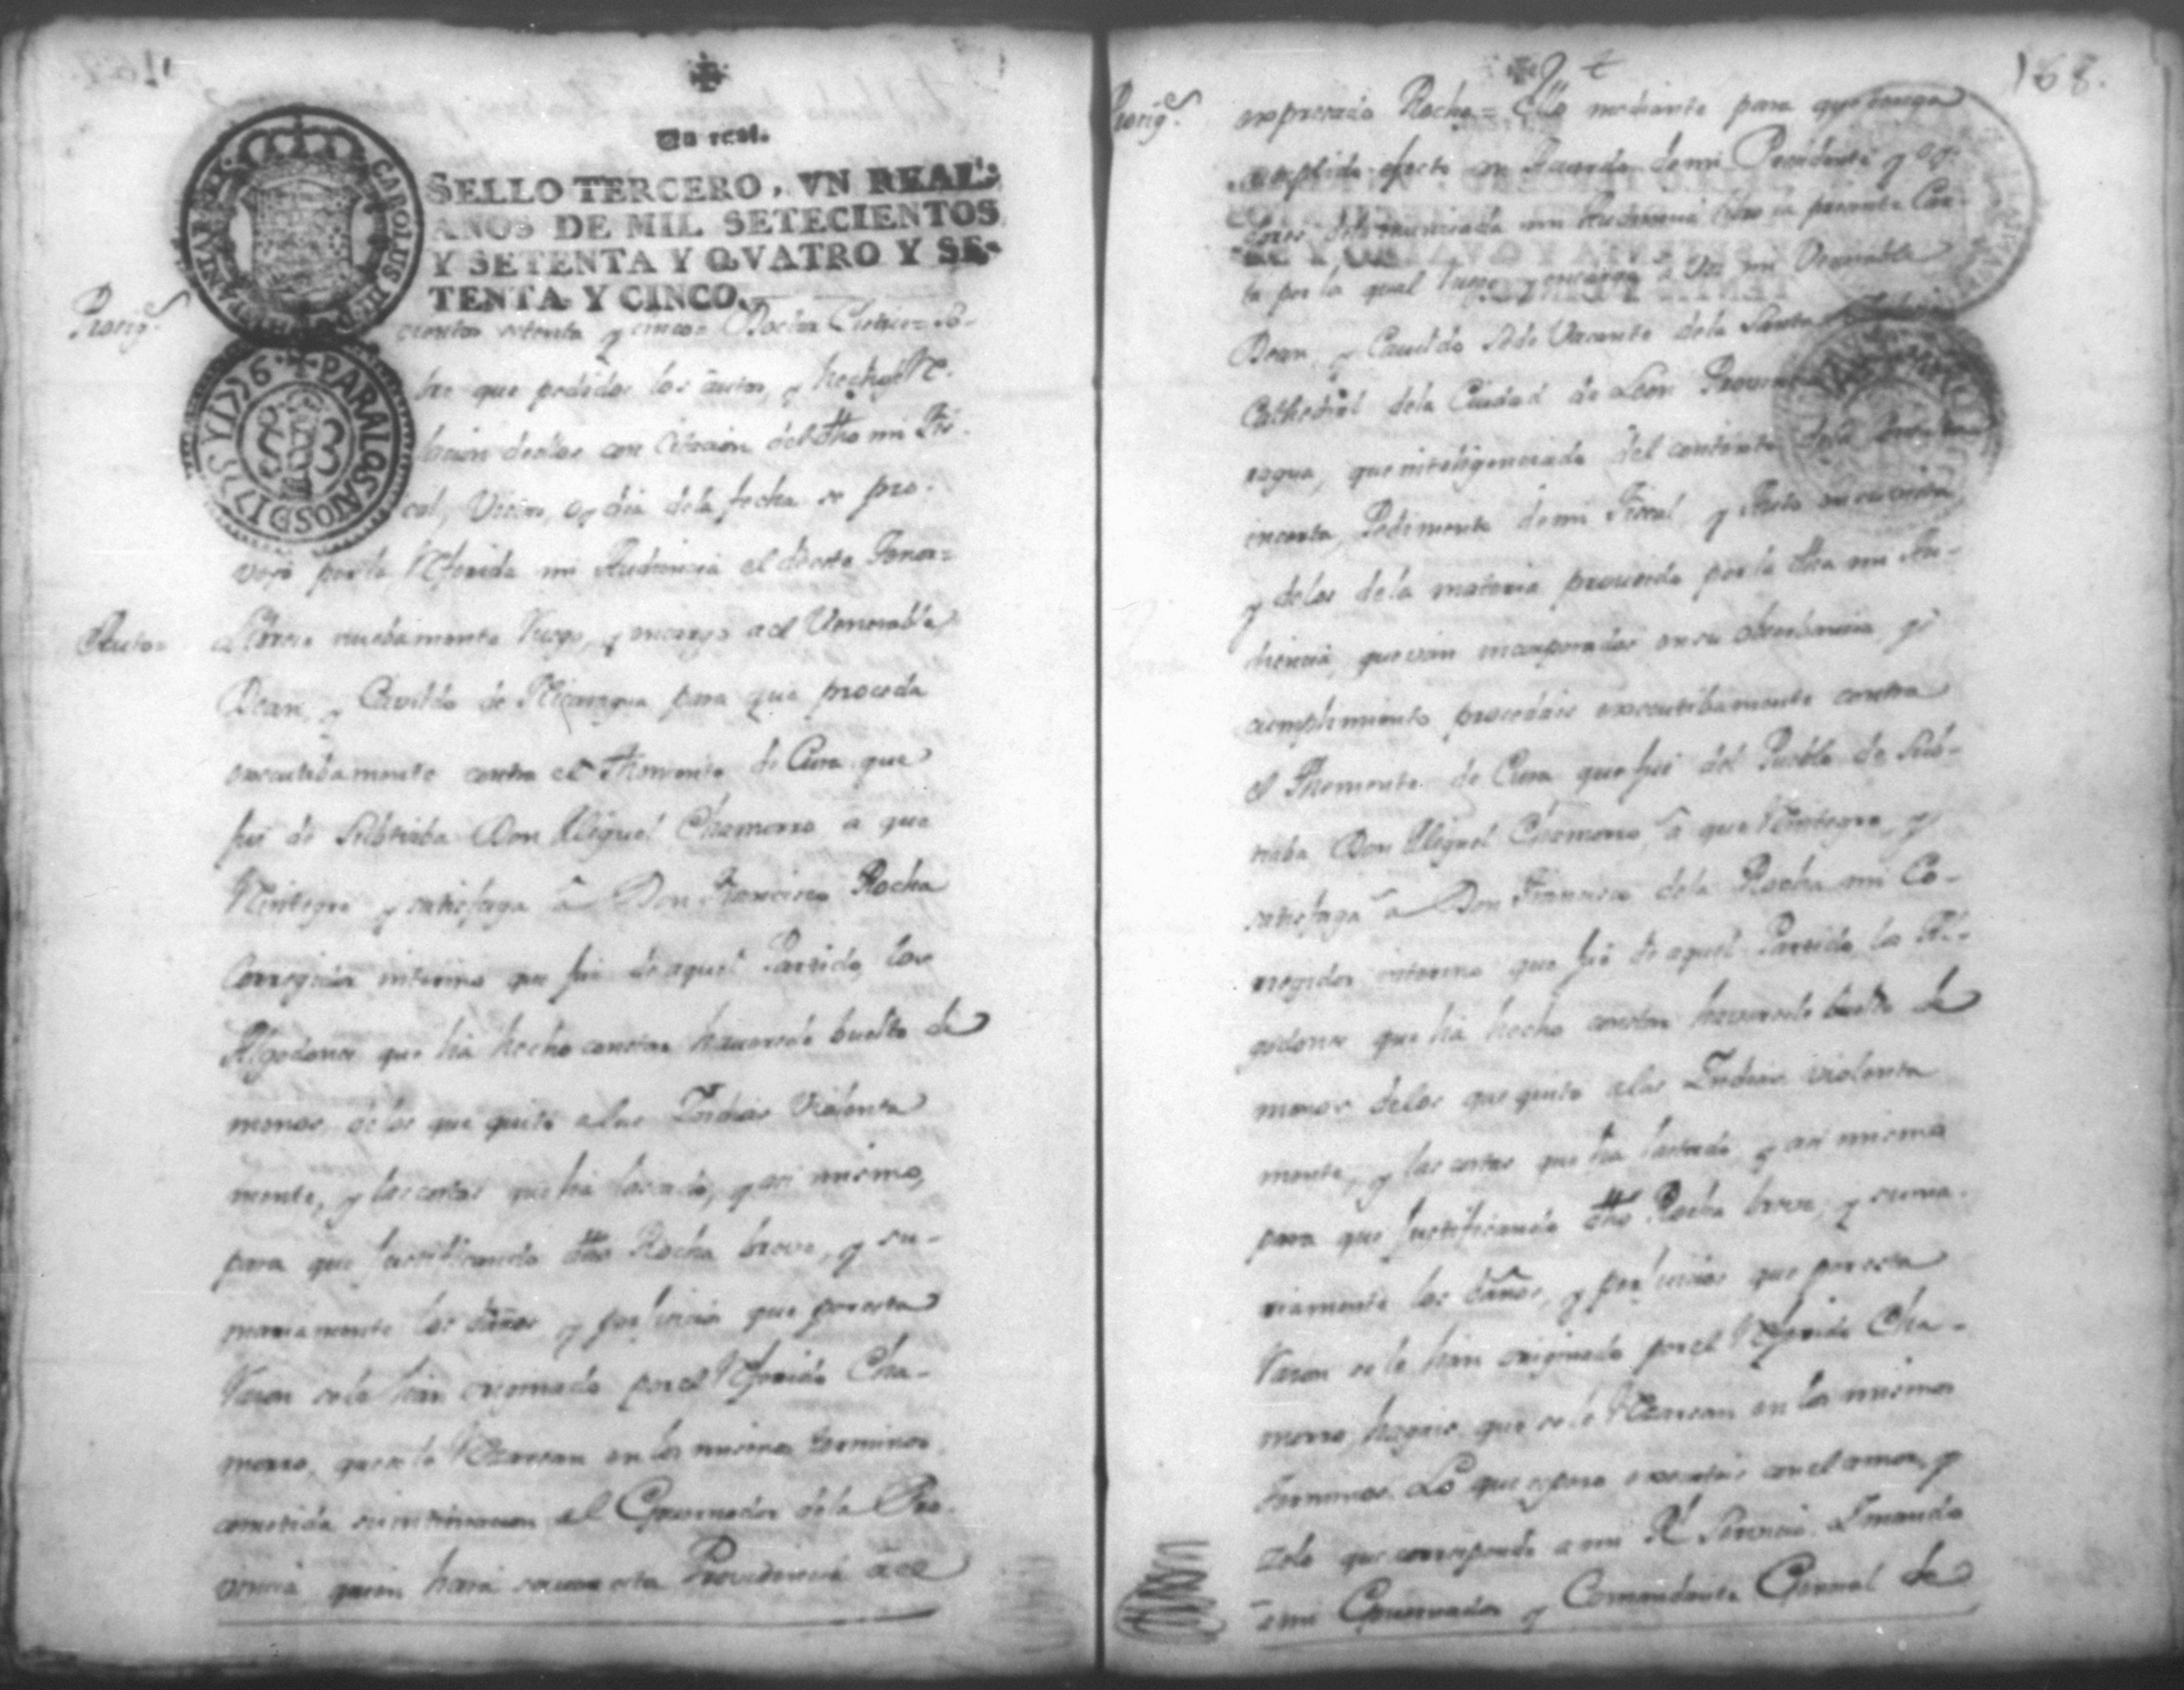 Un real.
SELLO TERCERO, VN REAL:
AÑOS DE MIL SETECIENTOS
Y SETENTA Y QVATRO Y SE-
TENTA Y CINCO.
CAROLUS III D G HISPANIAR REX
PARA LOS AÑOS DE 1776 Y 1777
cientos setenta y cinco= Doctor
bre que pedidos los autos, y hecha Re-
lacion de ellos con Citacion del dho mi Fis-
cal, oy dia de la fecha se pro-
veyó por la Referida mi Audiencia el
Auto= Librese nuebamente Ruego, y encargo a el Venerable
Dean, y Cavildo de Nicaragua para que proceda
executibamente contra el Theniente de Cura que
fue de Subtiaba Don Miguel Chamorro a que
Reintegre y satisfaga â Don Francisco Rocha
Corregidor interino que fue de aquel Partido, los
Algodones que ha hecho constar haverse buelto de
menos, de los que quitó a las Indias Violenta
mente, y las costas que ha lastado, y asi mismo,
para que justificando dho Rocha breve, y su-
mariamente los daños y perjuicios que por esta
Razon se le han originado por el Referido Cha-
morro, que se le Rezarsan en los mismos terminos
cometida su intimacion al Governador de la Pro-
vincia quien hará saver esta Providencia a el
168.
expresado Rocha= Y mediante para que tenga
cumplido efecto en Acuerdo de mi Presidente y Oy-
dores de la enunciada mi Audiencia libro la presente Car-
ta por la qual Ruego y encargo a Vos mi Venerable
Dean, y Cavildo Sede Vacante de la Santa Iglesia
Cathedral de la Ciudad de Leon Provincia
ragua, que inteligenciado del contenido
incerta Pedimento de mi Fiscal, y Auto
y delos de la materia proveido por la dha mi Au-
diencia, que van incorporados en su obserbancia, y
cumplimiento procedais executibamente contra
el Theniente de Cura que fue del Pueblo de Sub-
tiaba Don Miguel Chamorro, â que Reintegre, y
satisfaga â Don Francisco dela Rocha mi Co-
rregidor interino que fue de aquel Partido, los Al-
godones que ha hecho constar haversele buelto de
menos delos que quito a las Indias violenta
mente, y las costas que ha lastado, y asi mismo
para que justificando dho Rocha breve, y suma-
riamente los daños, y perjuicios que por esta
Razon se le han originado por el Referido Cha-
morro, hagais que se le Rezarsan en los mismos
terminos. Lo que espero executeis con el amor, y
zelo que corresponde a mi Rl Servicio. Y mando
a mi Governador y Comandante General de